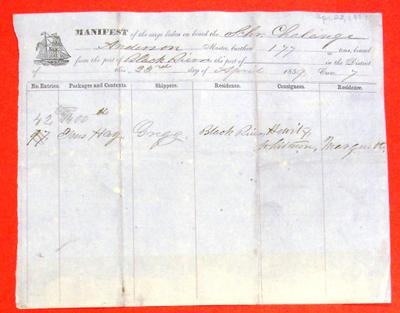 Apr. 22, 1859
MANIFEST of the cargo laden on board the Schr. Chalange
Anderson Master, burthen 177 tons, bound
from the port of Black River in the District
of this 22nd day of April 1859. Cus. 7
No. Entries. Packages and Contents. Shippers. Residence. Consignees. Residence.
42 8400 lb
Tons Hay Gregg Black River Hewit &
Whitman, Marquette